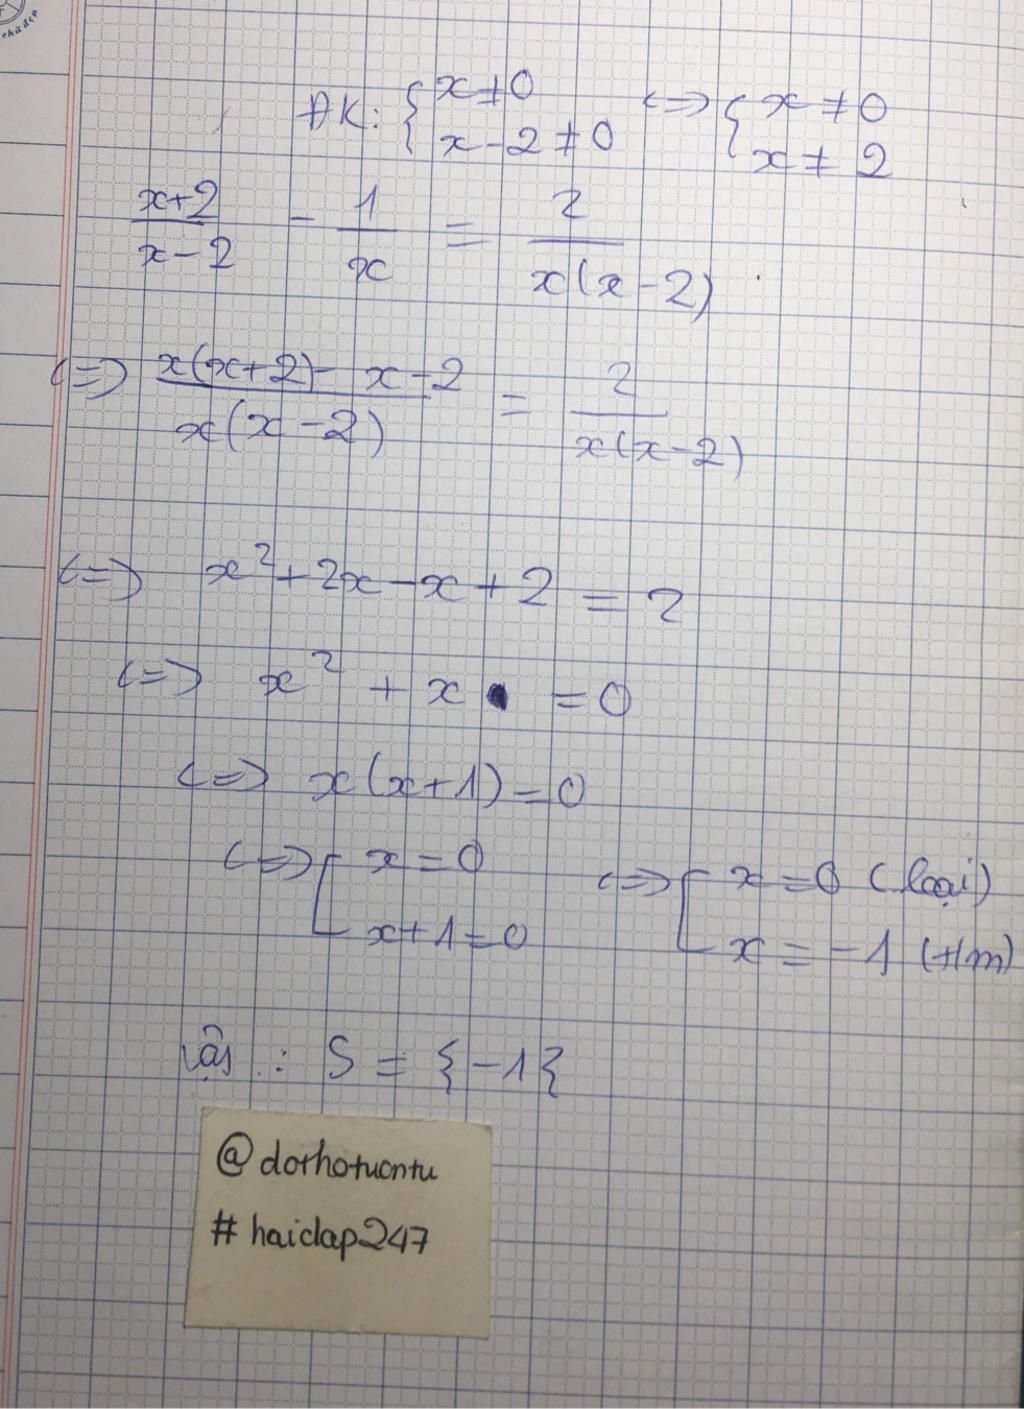 chữ đẹp
ĐK: { x ≠ 0 ; x - 2 ≠ 0 <=> { x ≠ 0 ; x ≠ 2
(x+2)/(x-2) - 1/x = 2/(x(x-2))
<=> (x(x+2) - x - 2)/(x(x-2)) = 2/(x(x-2))
<=> x² + 2x - x + 2 = 2
<=> x² + x = 0
<=> x(x+1) = 0
<=> [ x = 0 ; x+1 = 0 <=> [ x = 0 (loại) ; x = -1 (t/m)
Vậy : S = {-1}
@dorhotuontu
# haidap247